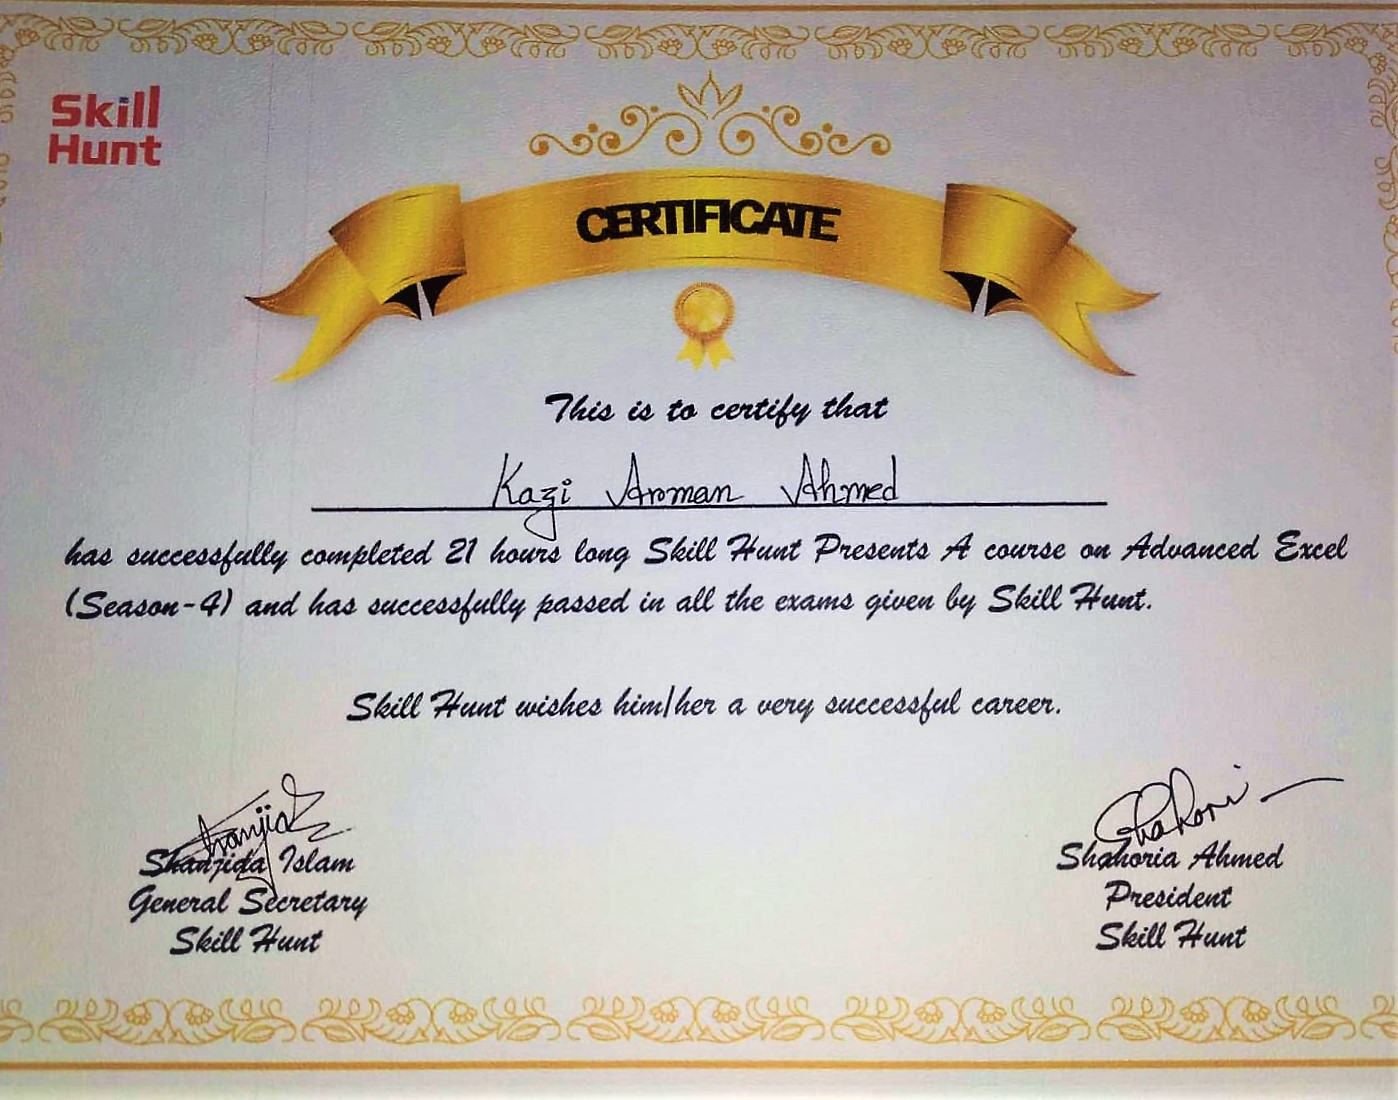 Skill
Hunt
CERTIFICATE
This is to certify that
Kazi Arman Ahmed
has successfully completed 21 hours long Skill Hunt Presents A course on Advanced Excel
(Season-4) and has successfully passed in all the exams given by Skill Hunt.
Skill Hunt wishes him/her a very successful career.
Shanjida
Shanjida Islam
General Secretary
Skill Hunt
Shahori
Shahoria Ahmed
President
Skill Hunt